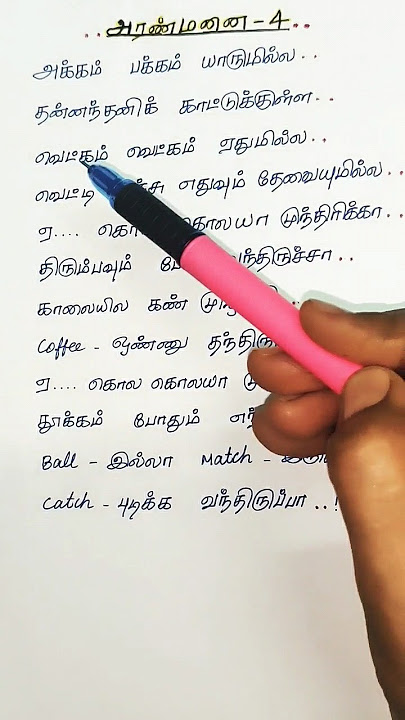 ..அரண்மனை-4..
அக்கம் பக்கம் யாருமில்ல..
தன்னந்தனிக் காட்டுக்குள்ள..
வெட்கம் வெட்கம் ஏதுமில்ல..
வெட்டி எதுவும் தேவையுமில்ல..
ஏ.... கொலயா முந்திரிக்கா..
திரும்பவும் வந்திருச்சா..
காலையில கண்
Coffee - ஒண்ணு
ஏ.... கொல கொலயா
தூக்கம் போதும்
Ball - இல்லா Match -
Catch - புடிக்க வந்திருப்பா..!